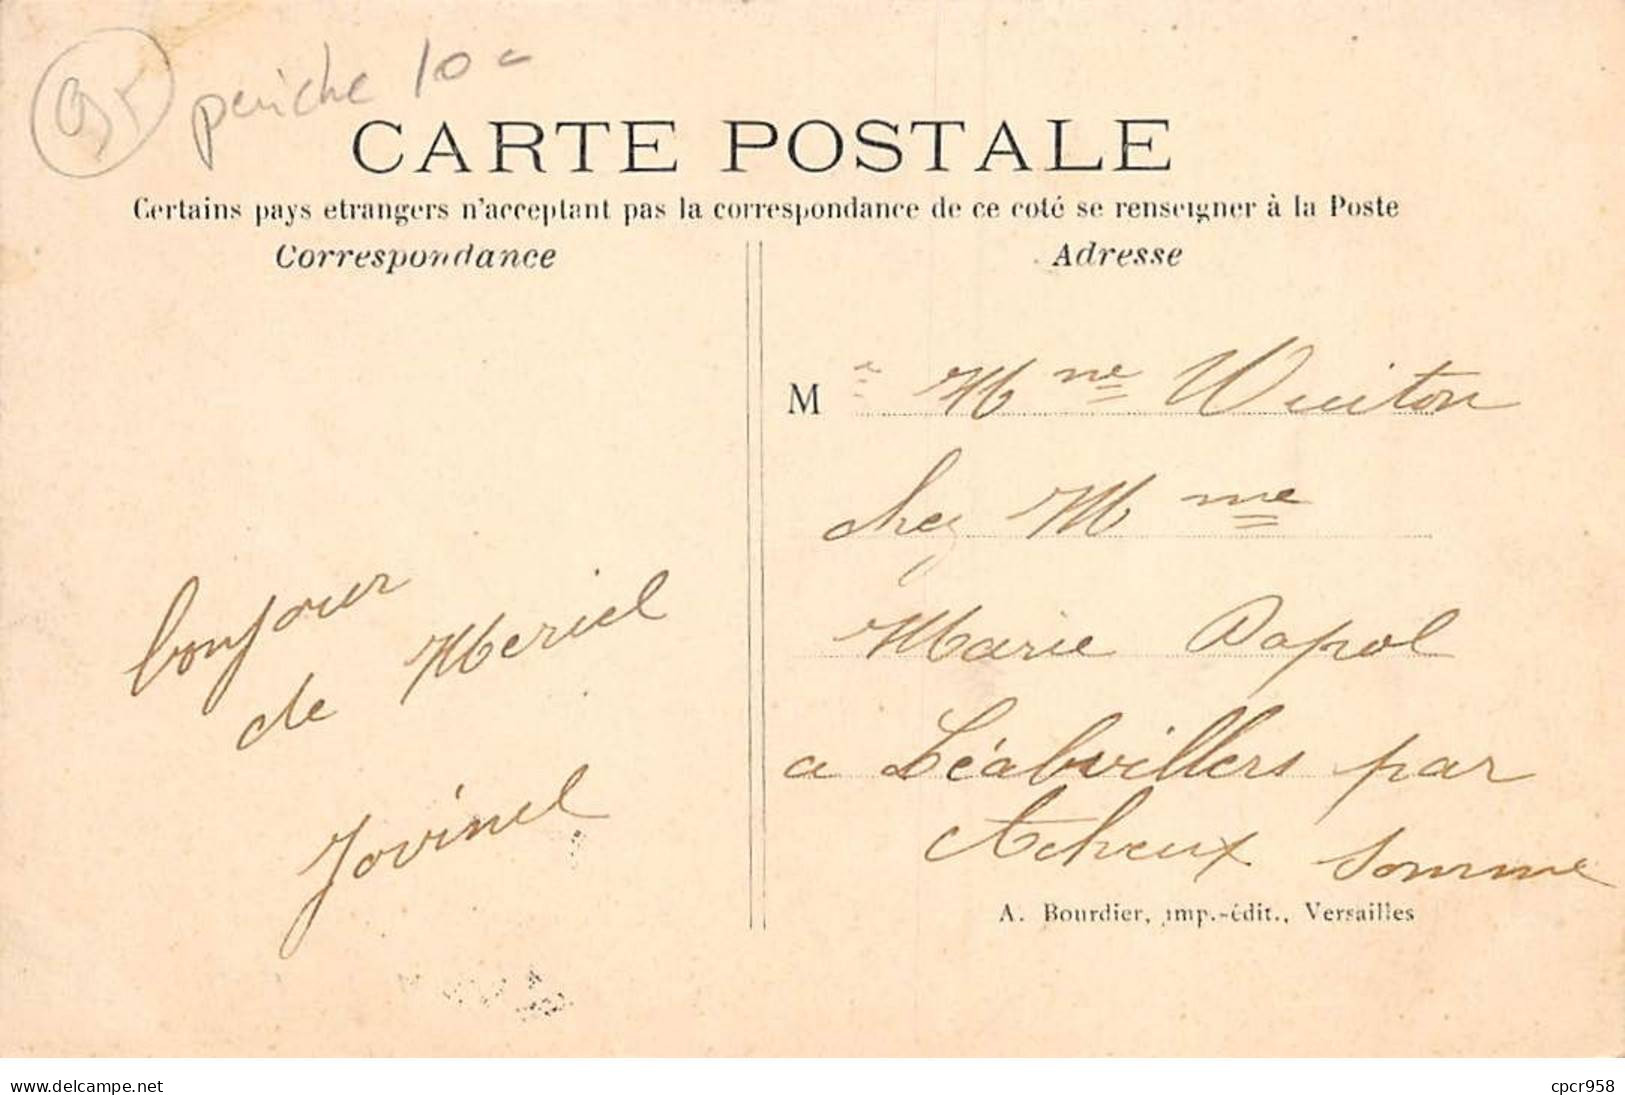 95 peniche 10-
CARTE POSTALE
Certains pays etrangers n'acceptant pas la correspondance de ce coté se renseigner à la Poste
Correspondance
Adresse
bonjour
de Meriel
Jovinel
M Mme Wuiton
chez Mme
Marie Papol
a Léalvillers par
Acheux Somme
A. Bourdier, imp.-édit., Versailles
www.delcampe.net
cpcr958